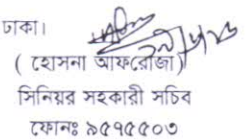 ঢাকা।
( হোসনা আফরোজা)
সিনিয়র সহকারী সচিব
ফোনঃ ৯৫৭৫৫০৩